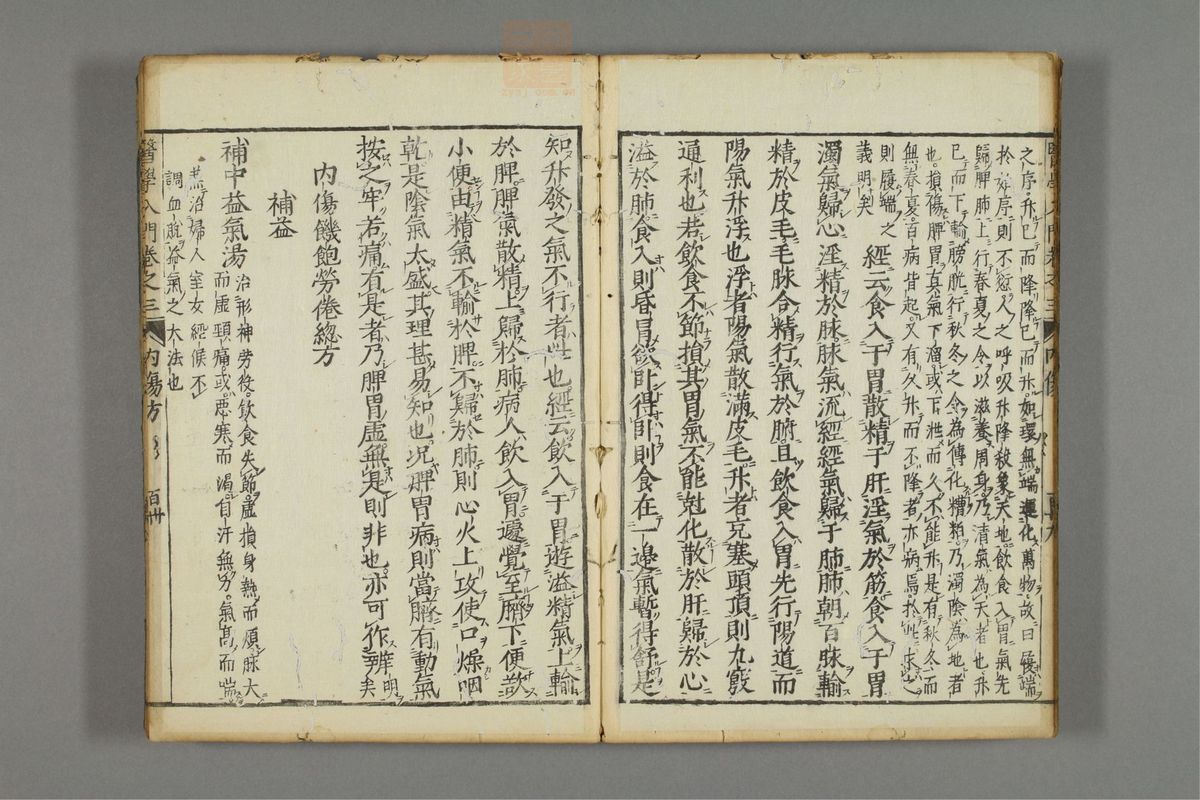 之序升已而降降已而升如環無端運化萬物故曰履端
於始序則不愆人之呼吸升降效象天地飲食入胃氣先
歸脾肺上行春夏之令以滋養周身乃清氣為天者也升
已而下輸膀胱行秋冬之令為傳化糟粕乃濁陰為地者
也損傷脾胃真氣下溜或下泄而久不能升是有秋冬而
無春夏百病皆起又有久升而不降者亦病焉於此求之
則履端之
義明矣
經云食入于胃散精于肝淫氣於筋食入于胃
濁氣歸心淫精於脉脉氣流經經氣歸于肺肺朝百脉輸
精於皮毛毛脉合精行氣於腑且飲食入胃先行陽道而
陽氣升浮也浮者陽氣散滿皮毛升者充塞頭頂則九竅
通利也若飲食不節損其胃氣不能尅化散於肝歸於心
溢於肺食入則昏冒欲卧得卧則食在一邊氣暫得舒是
知升發之氣不行者此也經云飲入于胃遊溢精氣上輸
於脾脾氣散精上歸於肺病人飲入胃遽覺至臍下便欲
小便由精氣不輸於脾不歸於肺則心火上攻使口燥咽
乾是陰氣太盛其理甚易知也况脾胃病則當臍有動氣
按之牢若痛有是者乃脾胃虛無是則非也亦可作辨明矣
內傷饑飽勞倦總方
補益
補中益氣湯
治形神勞役飲食失節虛損身熱而煩脉大
而虛頭痛或惡寒而渴自汗無力氣高而喘
兼治婦人室女經候不
調血脫益氣之大法也
醫學入門卷之三
內傷方